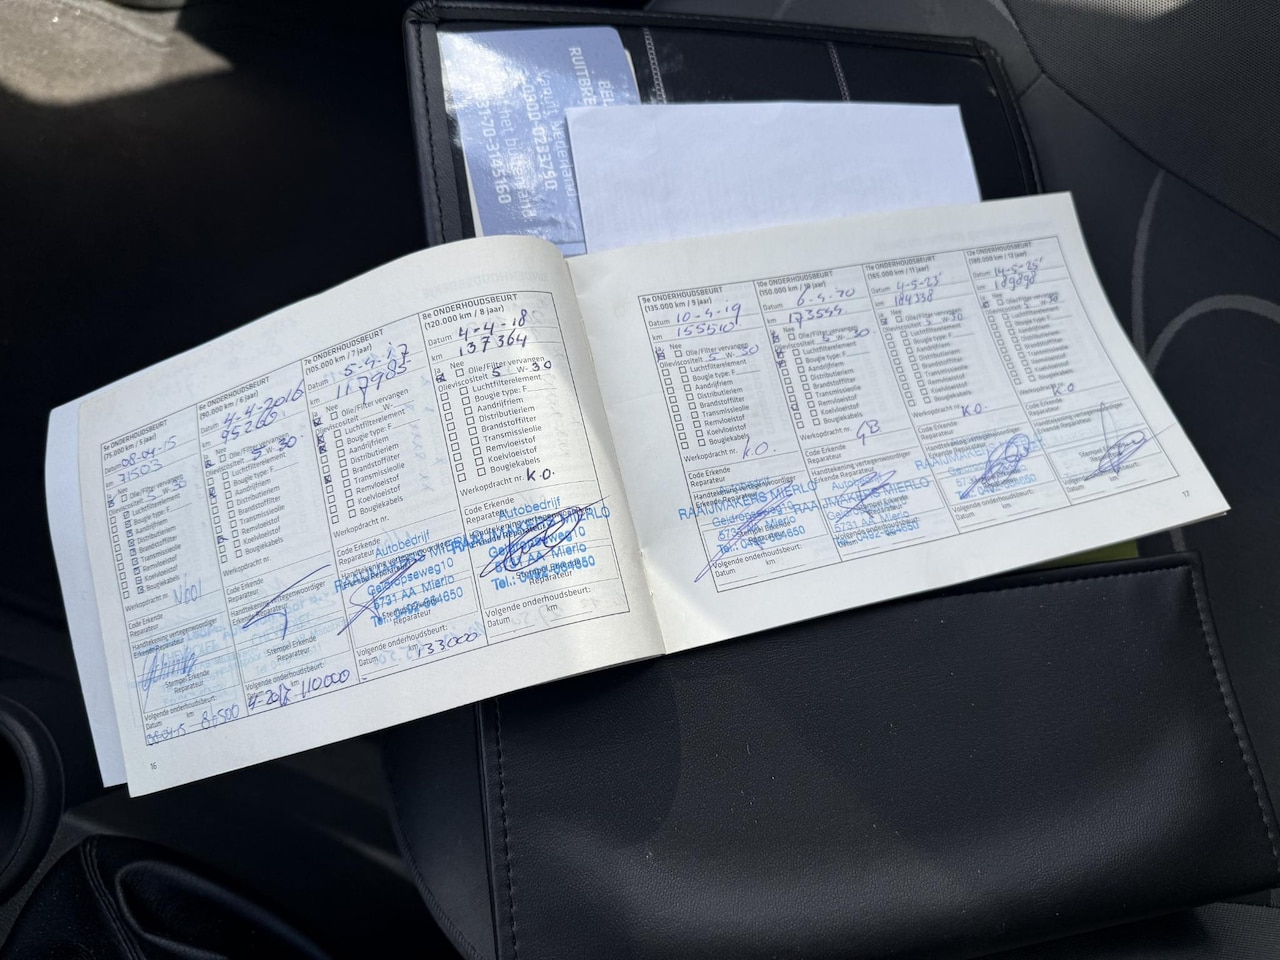 Nederland:
0800-0233790
5e ONDERHOUDSBEURT
(75.000 km / 5 jaar)
Datum 08-04-15
km 71503
Nee
Olie/Filter vervangen
Luchtfilterelement
Bougie type: F
Aandrijfriem
Distributieriem
Brandstoffilter
Transmissieolie
Remvloeistof
Koelvloeistof
Bougiekabels
Werkopdracht nr.
Code Erkende
Reparateur
Handtekening vertegenwoordiger
Erkende Reparateur
Stempel Erkende
Reparateur
Volgende onderhoudsbeurt:
Datum km
87500
6e ONDERHOUDSBEURT
(90.000 km / 6 jaar)
Datum 4-4-2016
km 95260
Nee
Olie/Filter vervangen
Olieviscositeit 5 W-30
Luchtfilterelement
Bougie type: F
Aandrijfriem
Distributieriem
Brandstoffilter
Transmissieolie
Remvloeistof
Koelvloeistof
Bougiekabels
Werkopdracht nr.
Code Erkende
Reparateur
Handtekening vertegenwoordiger
Erkende Reparateur
Stempel Erkende
Reparateur
Volgende onderhoudsbeurt:
Datum km
4-2017 110000
7e ONDERHOUDSBEURT
(105.000 km / 7 jaar)
Datum 5-4-17
km 117985
Ja Nee
Olie/Filter vervangen
Olieviscositeit W-
Luchtfilterelement
Bougie type: F
Aandrijfriem
Distributieriem
Brandstoffilter
Transmissieolie
Remvloeistof
Koelvloeistof
Bougiekabels
Werkopdracht nr.
Code Erkende
Reparateur
Autobedrijf
RAAIJMAKERS MIERLO
Geldropseweg 10
5731 AA Mierlo
Tel.: 0492-664650
Volgende onderhoudsbeurt:
Datum km 133000
8e ONDERHOUDSBEURT
(120.000 km / 8 jaar)
Datum 4-4-18
km 137364
Ja Nee
Olie/Filter vervangen
Olieviscositeit 5 W-30
Luchtfilterelement
Bougie type: F
Aandrijfriem
Distributieriem
Brandstoffilter
Transmissieolie
Remvloeistof
Koelvloeistof
Bougiekabels
Werkopdracht nr. K.O.
Code Erkende
Reparateur
Autobedrijf
RAAIJMAKERS MIERLO
Geldropseweg 10
5731 AA Mierlo
Tel.: 0492-664650
Volgende onderhoudsbeurt:
Datum km
16
9e ONDERHOUDSBEURT
(135.000 km / 9 jaar)
Datum 10-4-19
km 155510
Ja Nee
Olie/Filter vervangen
Olieviscositeit 5 W-30
Luchtfilterelement
Bougie type: F
Aandrijfriem
Distributieriem
Brandstoffilter
Transmissieolie
Remvloeistof
Koelvloeistof
Bougiekabels
Werkopdracht nr. K.O.
Code Erkende
Reparateur
Handtekening vertegenwoordiger
Erkende Reparateur
RAAIJMAKERS MIERLO
Geldropseweg 10
Tel.: 0492-664650
Volgende onderhoudsbeurt:
Datum km
10e ONDERHOUDSBEURT
(150.000 km / 10 jaar)
Datum 6-4-20
km 173544
Ja Nee
Olie/Filter vervangen
Olieviscositeit 5 W-30
Luchtfilterelement
Bougie type: F
Aandrijfriem
Distributieriem
Brandstoffilter
Transmissieolie
Remvloeistof
Koelvloeistof
Bougiekabels
Werkopdracht nr. GB
Code Erkende
Reparateur
Handtekening vertegenwoordiger
Erkende Reparateur
RAAIJMAKERS MIERLO
5731 AA Mierlo
Tel.: 0492-664650
Volgende onderhoudsbeurt:
Datum km
11e ONDERHOUDSBEURT
(165.000 km / 11 jaar)
Datum 4-5-23
km 184338
Ja Nee
Olie/Filter vervangen
Olieviscositeit 5 W-30
Luchtfilterelement
Bougie type: F
Aandrijfriem
Distributieriem
Brandstoffilter
Transmissieolie
Remvloeistof
Koelvloeistof
Bougiekabels
Werkopdracht nr. K.O.
Code Erkende
Reparateur
Handtekening vertegenwoordiger
Erkende Reparateur
Volgende onderhoudsbeurt:
Datum km
12e ONDERHOUDSBEURT
(180.000 km / 12 jaar)
Datum 14-5-25
km 189898
Ja Nee
Olie/Filter vervangen
Olieviscositeit 5 W-30
Luchtfilterelement
Bougie type: F
Aandrijfriem
Distributieriem
Brandstoffilter
Transmissieolie
Remvloeistof
Koelvloeistof
Bougiekabels
Werkopdracht nr. K.O.
Code Erkende
Reparateur
Handtekening vertegenwoordiger
Erkende Reparateur
Stempel Erkende
Reparateur
Volgende onderhoudsbeurt:
Datum km
17